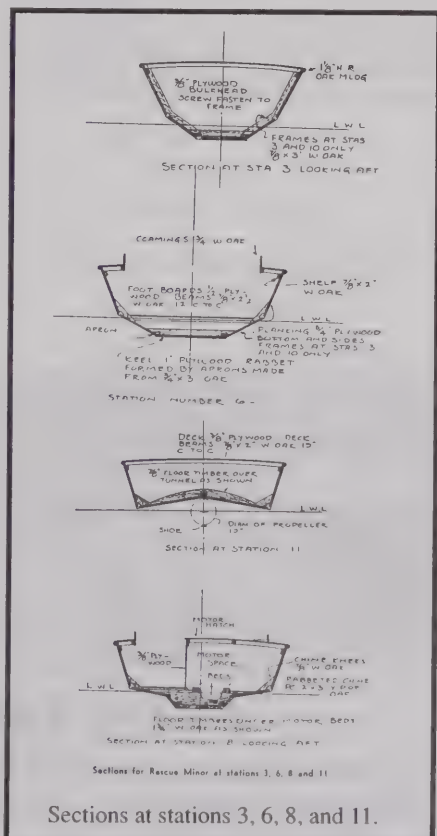 1 1/8" H.R.
OAK MLDG
3/8" PLYWOOD
BULKHEAD
SCREW FASTEN TO
FRAME
L W L
FRAMES AT STAS
3 AND 10 ONLY
7/8 x 3" W OAK
SECTION AT STA 3 LOOKING AFT
COAMINGS 3/4 W OAK
SHELF 7/8" x 2"
W OAK
FOOT BOARDS 1/2 PLY-
WOOD BEAMS
W OAK 12 C TO C
L W L
APRON
PLANKING 3/4" PLYWOOD
BOTTOM AND SIDES
FRAMES AT STAS 3
AND 10 ONLY
KEEL 1" PLYWOOD RABBET
FORMED BY APRONS MADE
FROM 3/4" x 3 OAK
STATION NUMBER 6-
DECK 3/8" PLYWOOD DECK
BEAMS 7/8" x 2" W OAK
C TO C
7/8" FLOOR TIMBER OVER
TUNNEL AS SHOWN
L W L
SHOE
DIAM OF PROPELLER
SECTION AT STATION 11
MOTOR
HATCH
3/8" PLY-
WOOD
MOTOR
SPACE
BEDS
L W L
CHINE KNEES
3/4" W OAK
OAK
FLOOR TIMBERS UNDER MOTOR BEDS
W OAK AS SHOWN
SECTION AT STATION 8 LOOKING AFT
Sections for Rescue Minor at stations 3, 6, 8 and 11
Sections at stations 3, 6, 8, and 11.